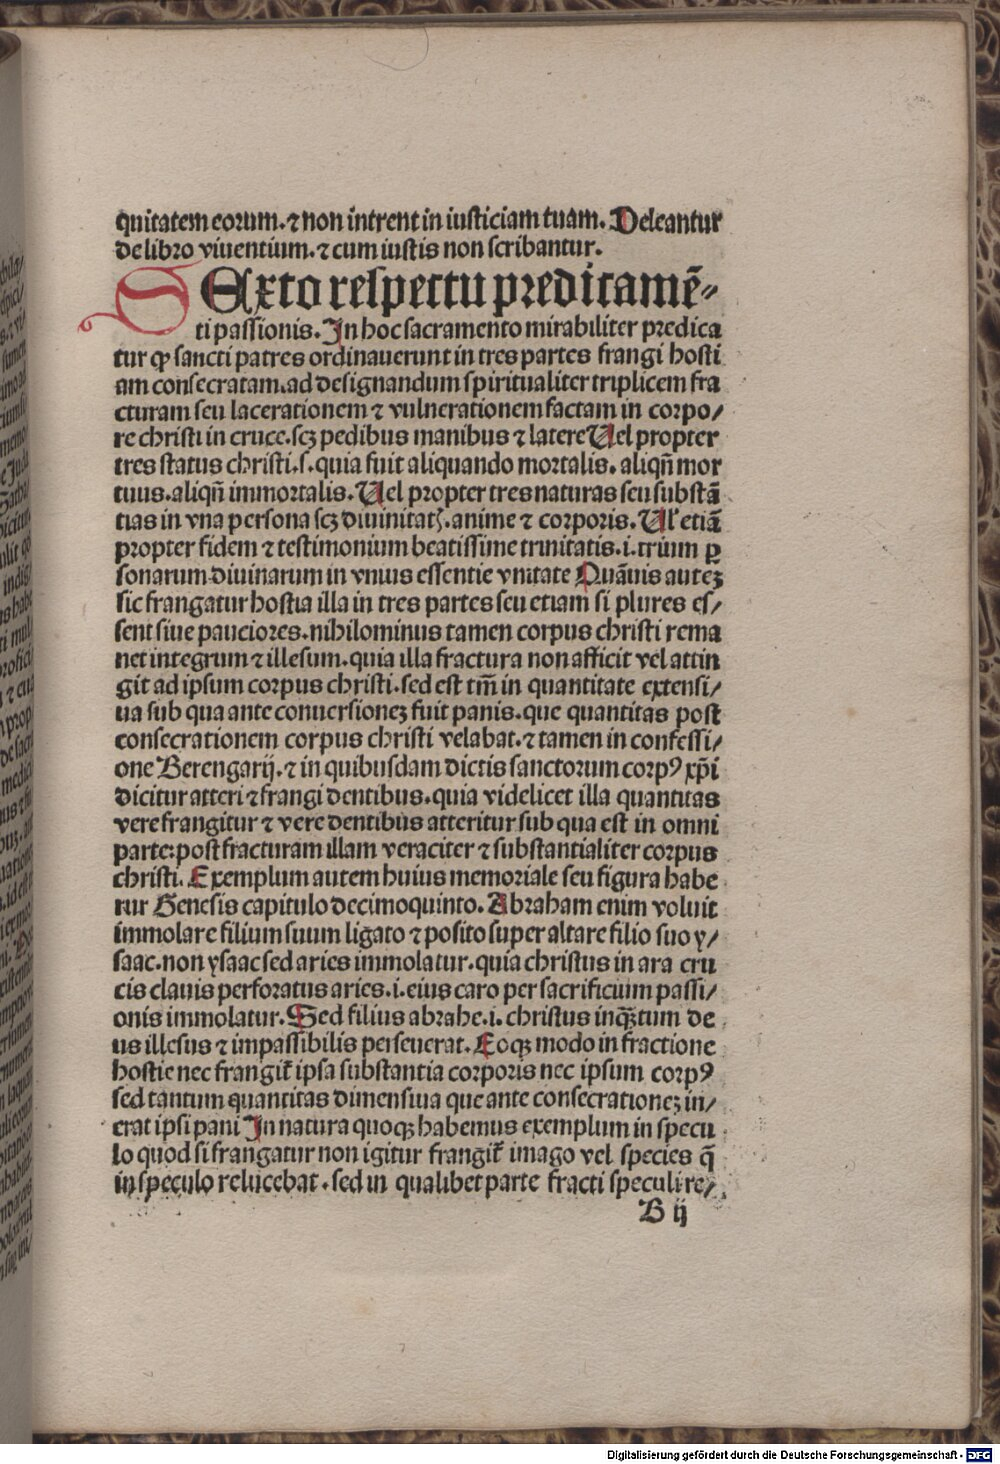 quitatem eorum. ⁊ non intrent in iusticiam tuam. Deleantur
de libro viuentium. ⁊ cum iustis non scribantur.
SExto respectu predicamē⸗
ti passionis. In hoc sacramento mirabiliter predica
tur ꝙ sancti patres ordinauerunt in tres partes frangi hosti
am consecratam. ad designandum spiritualiter triplicem fra
cturam seu lacerationem ⁊ vulnerationem factam in corpo/
re christi in cruce. scꝫ pedibus manibus ⁊ latere Uel propter
tres status christi. s. quia fuit aliquando mortalis. aliqñ mor
tuus. aliqñ immortalis. Uel propter tres naturas seu substā
tias in vna persona scꝫ diuinitatꝭ. anime ⁊ corporis. Ul̄ etiā
propter fidem ⁊ testimonium beatissime trinitatis. i. trium ꝑ
sonarum diuinarum in vnius essentie vnitate Quāuis auteꝫ
sic frangatur hostia illa in tres partes seu etiam si plures es/
sent siue pauciores. nihilominus tamen corpus christi rema
net integrum ⁊ illesum. quia illa fractura non afficit vel attin
git ad ipsum corpus christi. sed est tm̄ in quantitate extensi/
ua sub qua ante conuersioneꝫ fuit panis. que quantitas post
consecrationem corpus christi velabat. ⁊ tamen in confessi/
one Berengarij. ⁊ in quibusdam dictis sanctorum corpꝰ xp̄i
dicitur atteri ⁊ frangi dentibus. quia videlicet illa quantitas
vere frangitur ⁊ vere dentibus atteritur sub qua est in omni
parte: post fracturam illam veraciter ⁊ substantialiter corpus
christi. Exemplum autem huius memoriale seu figura habe
tur Genesis capitulo decimoquinto. Abraham enim voluit
immolare filium suum ligato ⁊ posito super altare filio suo y/
saac. non ysaac sed aries immolatur. quia christus in ara cru
cis clauis perforatus aries. i. eius caro per sacrificium passi/
onis immolatur. Sed filius abrahe. i. christus inqꝫtum de
us illesus ⁊ impassibilis perseuerat. Eoqꝫ modo in fractione
hostie nec frangit̄ ipsa substantia corporis nec ipsum corpꝰ
sed tantum quantitas dimensiua que ante consecrationeꝫ in/
erat ipsi pani In natura quoqꝫ habemus exemplum in specu
lo quod si frangatur non igitur frangit̄ imago vel species q̄
in speculo relucebat. sed in qualibet parte fracti speculi re/
B ij
Digitalisierung gefördert durch die Deutsche Forschungsgemeinschaft - DFG